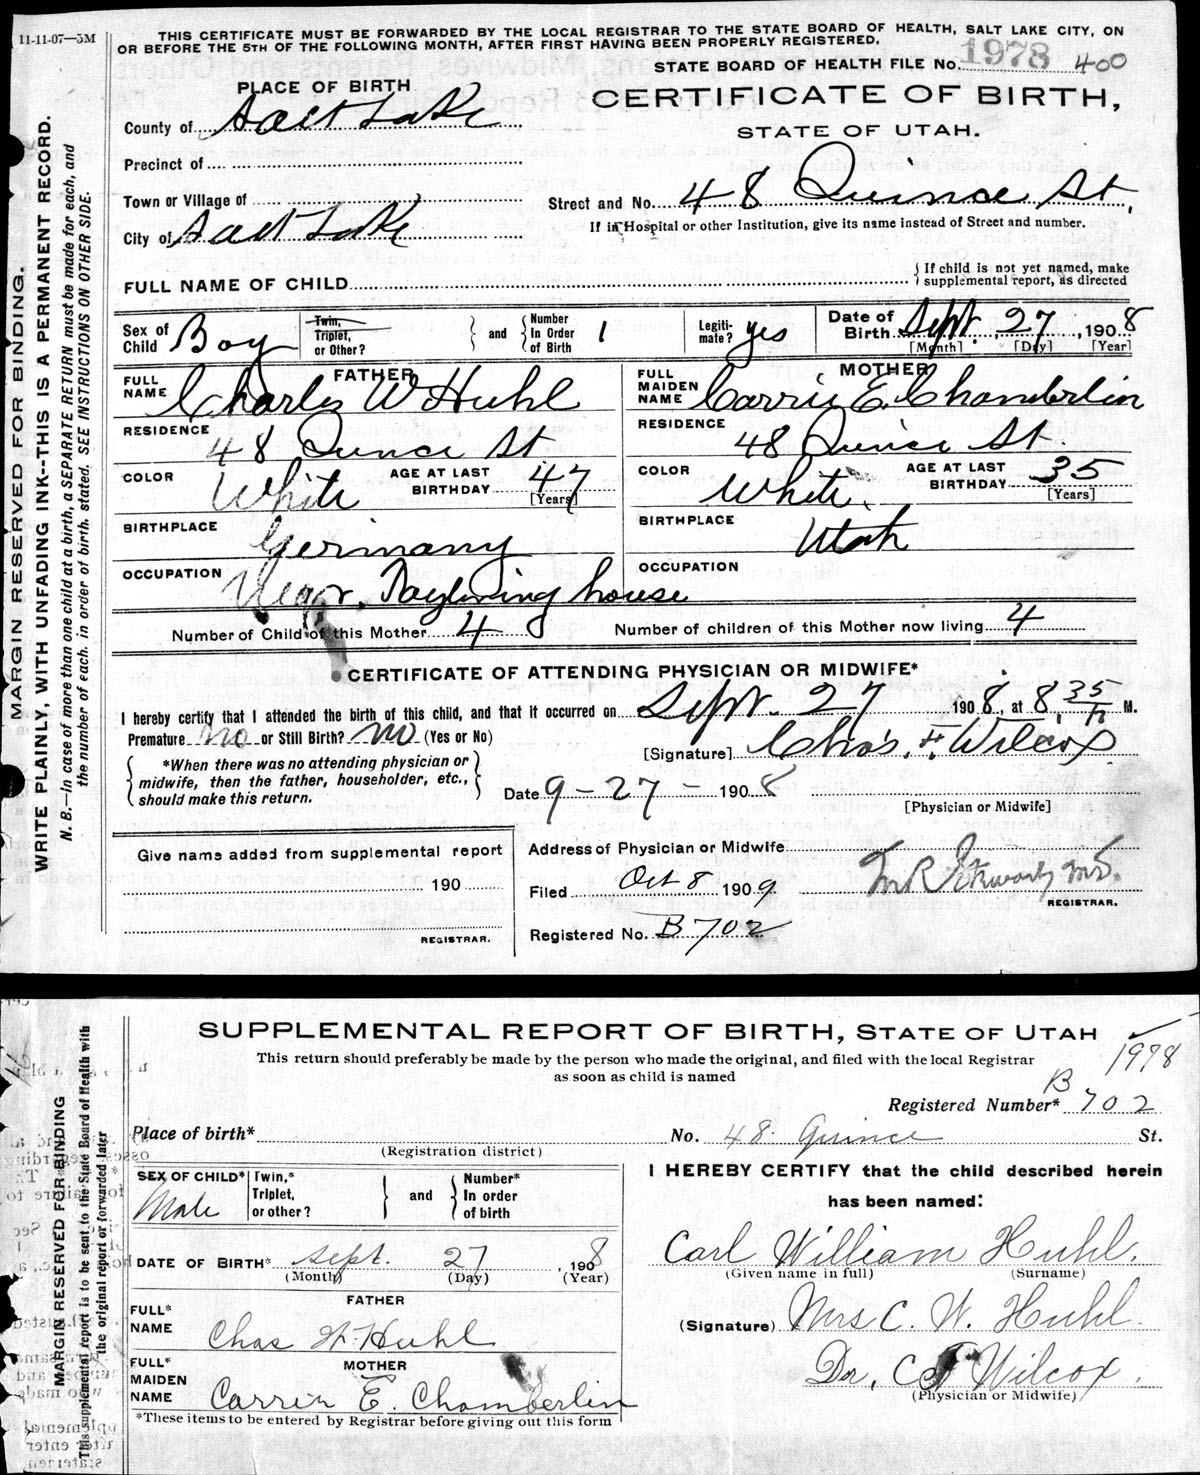 11-11-07—5M
THIS CERTIFICATE MUST BE FORWARDED BY THE LOCAL REGISTRAR TO THE STATE BOARD OF HEALTH, SALT LAKE CITY, ON
OR BEFORE THE 5TH OF THE FOLLOWING MONTH, AFTER FIRST HAVING BEEN PROPERLY REGISTERED.
STATE BOARD OF HEALTH FILE No. 1978 400
PLACE OF BIRTH
CERTIFICATE OF BIRTH,
STATE OF UTAH.
County of Salt Lake
Precinct of
Town or Village of
Street and No. 48 Quince St.
City of Salt Lake
If in Hospital or other Institution, give its name instead of Street and number.
FULL NAME OF CHILD
If child is not yet named, make
supplemental report, as directed
Sex of Child Boy
Twin, Triplet, or Other?
and
Number In Order of Birth 1
Legiti-mate? yes
Date of Birth Sept. 27, 1908
[Month] [Day] [Year]
FATHER
FULL NAME Charles W Huhl
RESIDENCE 48 Quince St
COLOR White
AGE AT LAST BIRTHDAY 47
[Years]
BIRTHPLACE Germany
OCCUPATION Megr. house
MOTHER
FULL MAIDEN NAME Carrie E. Chamberlin
RESIDENCE 48 Quince St.
COLOR White
AGE AT LAST BIRTHDAY 35
[Years]
BIRTHPLACE Utah
OCCUPATION
Number of Child of this Mother 4
Number of children of this Mother now living 4
CERTIFICATE OF ATTENDING PHYSICIAN OR MIDWIFE*
I hereby certify that I attended the birth of this child, and that it occurred on Sept. 27 1908, at 8 35 M.
Premature no or Still Birth? no (Yes or No)
[Signature] Chas. F. Wilcox
*When there was no attending physician or
midwife, then the father, householder, etc.,
should make this return.
Date 9-27- 1908
[Physician or Midwife]
Give name added from supplemental report
190
REGISTRAR.
Address of Physician or Midwife
Filed Oct 8 1909
M.D.
REGISTRAR.
Registered No. B702
MARGIN RESERVED FOR BINDING.
WRITE PLAINLY, WITH UNFADING INK--THIS IS A PERMANENT RECORD.
N. B.—In case of more than one child at a birth, a SEPARATE RETURN must be made for each, and
the number of each, in order of birth, stated. SEE INSTRUCTIONS ON OTHER SIDE.
SUPPLEMENTAL REPORT OF BIRTH, STATE OF UTAH
This return should preferably be made by the person who made the original, and filed with the local Registrar
as soon as child is named
1978
Registered Number* B 702
Place of birth* No. 48 Quince St.
(Registration district)
SEX OF CHILD* Male
Twin,* Triplet, or other?
and
Number* In order of birth
DATE OF BIRTH* Sept. 27, 1908
(Month) (Day) (Year)
FATHER
FULL* NAME Chas W. Huhl
MOTHER
FULL* MAIDEN NAME Carrie E. Chamberlin
*These items to be entered by Registrar before giving out this form
I HEREBY CERTIFY that the child described herein
has been named:
Carl William Huhl.
(Given name in full) (Surname)
(Signature) Mrs C. W. Huhl.
Dr. C F Wilcox.
(Physician or Midwife)
MARGIN RESERVED FOR BINDING
This supplemental report is to be sent to the State Board of Health with
the original report or forwarded later